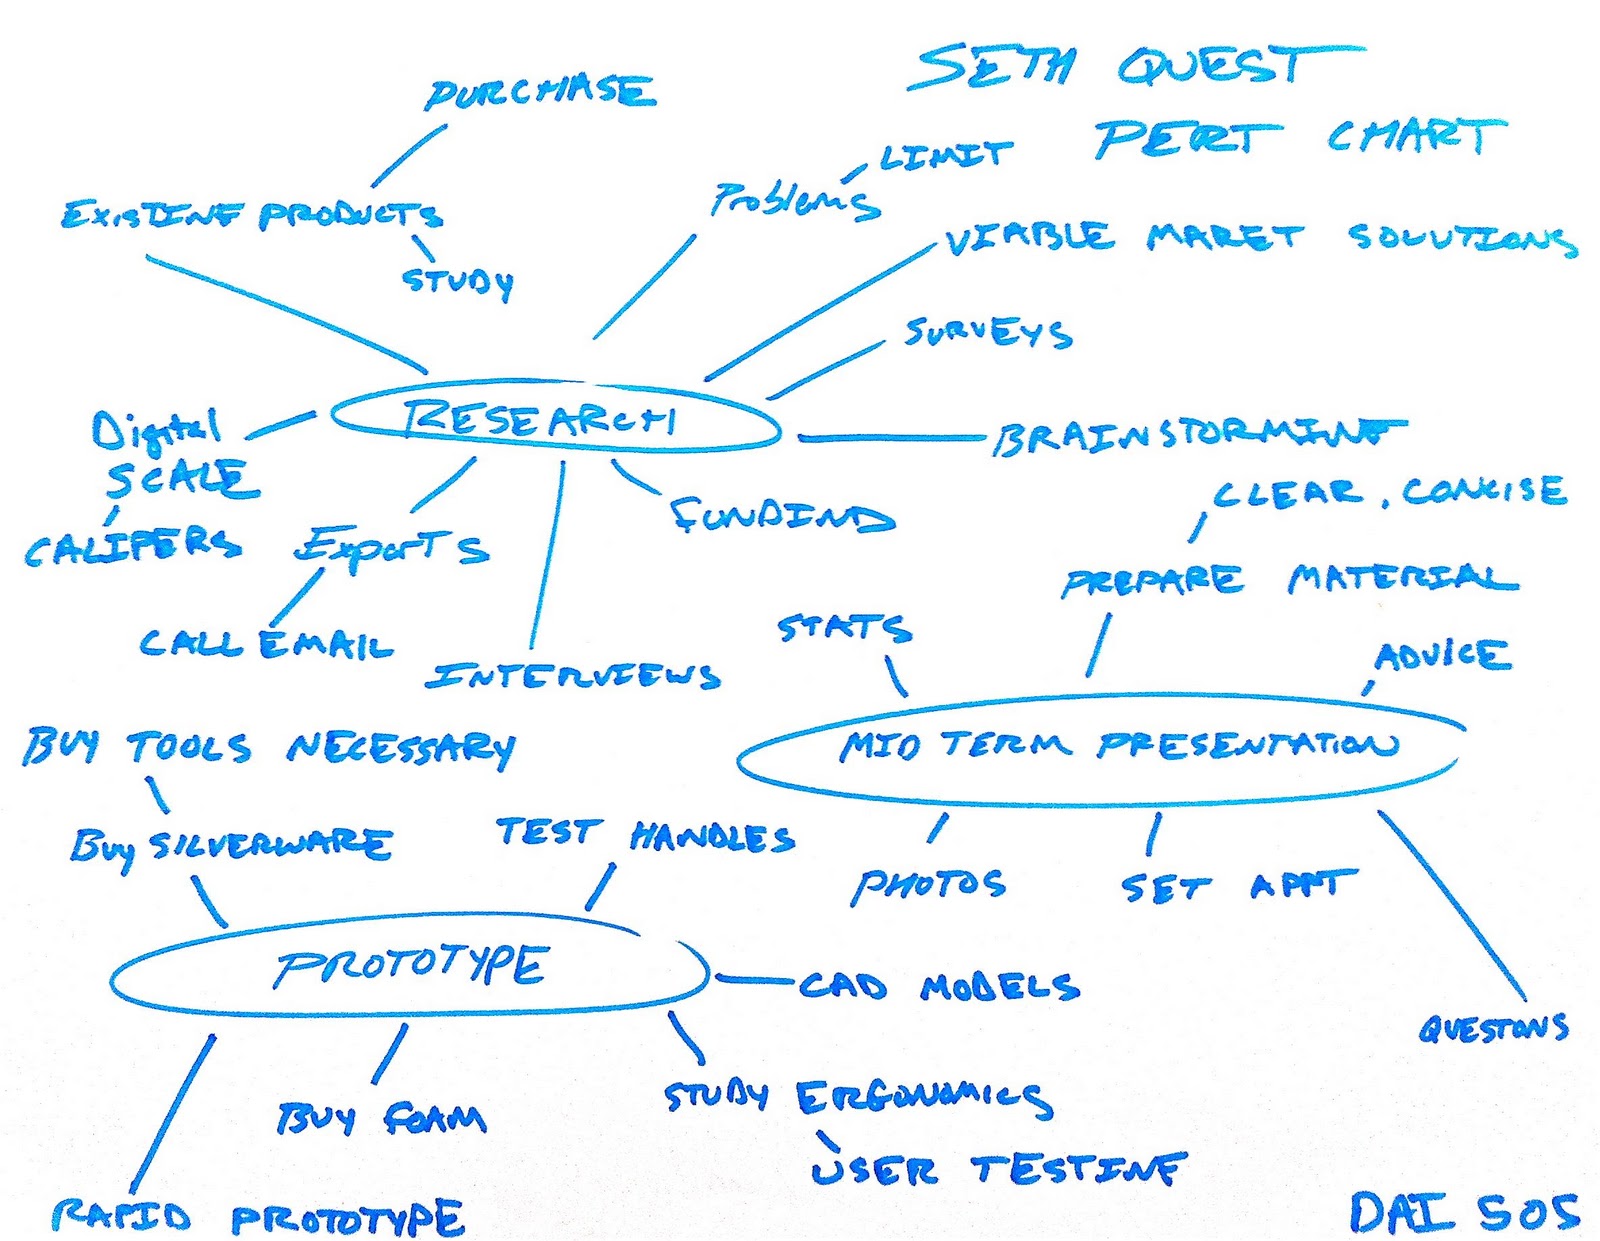 SETH QUEST
PERT CHART
PURCHASE
LIMIT
Problems
EXISTING PRODUCTS
VIABLE MARET SOLUTIONS
STUDY
SURVEYS
RESEARCH
Digital
SCALE
BRAINSTORMING
CLEAR, CONCISE
FUNDING
CALIPERS
Experts
PREPARE MATERIAL
STATS
CALL EMAIL
ADVICE
INTERVIEWS
BUY TOOLS NECESSARY
MID TERM PRESENTATION
BUY SILVERWARE
TEST HANDLES
PHOTOS
SET APPT
PROTOTYPE
CAD MODELS
QUESTONS
STUDY ERGONOMICS
BUY FOAM
USER TESTING
RAPID PROTOTYPE
DAI 505